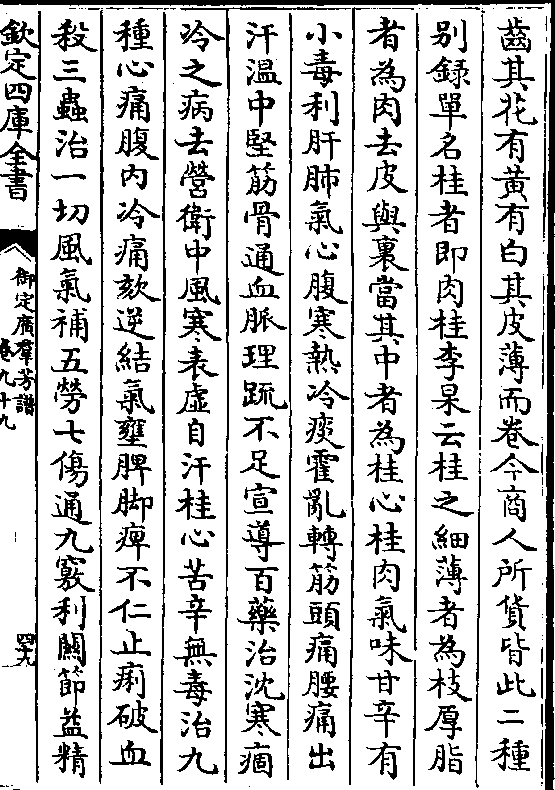 齒其花有黄有白其皮薄而卷今商人所貨皆此二種
别録單名桂者即肉桂李杲云桂之細薄者為枝厚脂
者為肉去皮與裏當其中者為桂心桂肉氣味甘辛有
小毒利肝肺氣心腹寒熱冷痰霍亂轉筋頭痛腰痛出
汗温中堅筋骨通血脈理疏不足宣導百藥治沈寒痼
冷之病去營衛中風寒表虚自汗桂心苦辛無毒治九
種心痛腹内冷痛欬逆結氣壅脾脚痺不仁止痢破血
殺三蟲治一切風氣補五勞七傷通九竅利關節益精
欽定四庫全書
御定廣羣芳譜
卷九十九
四九